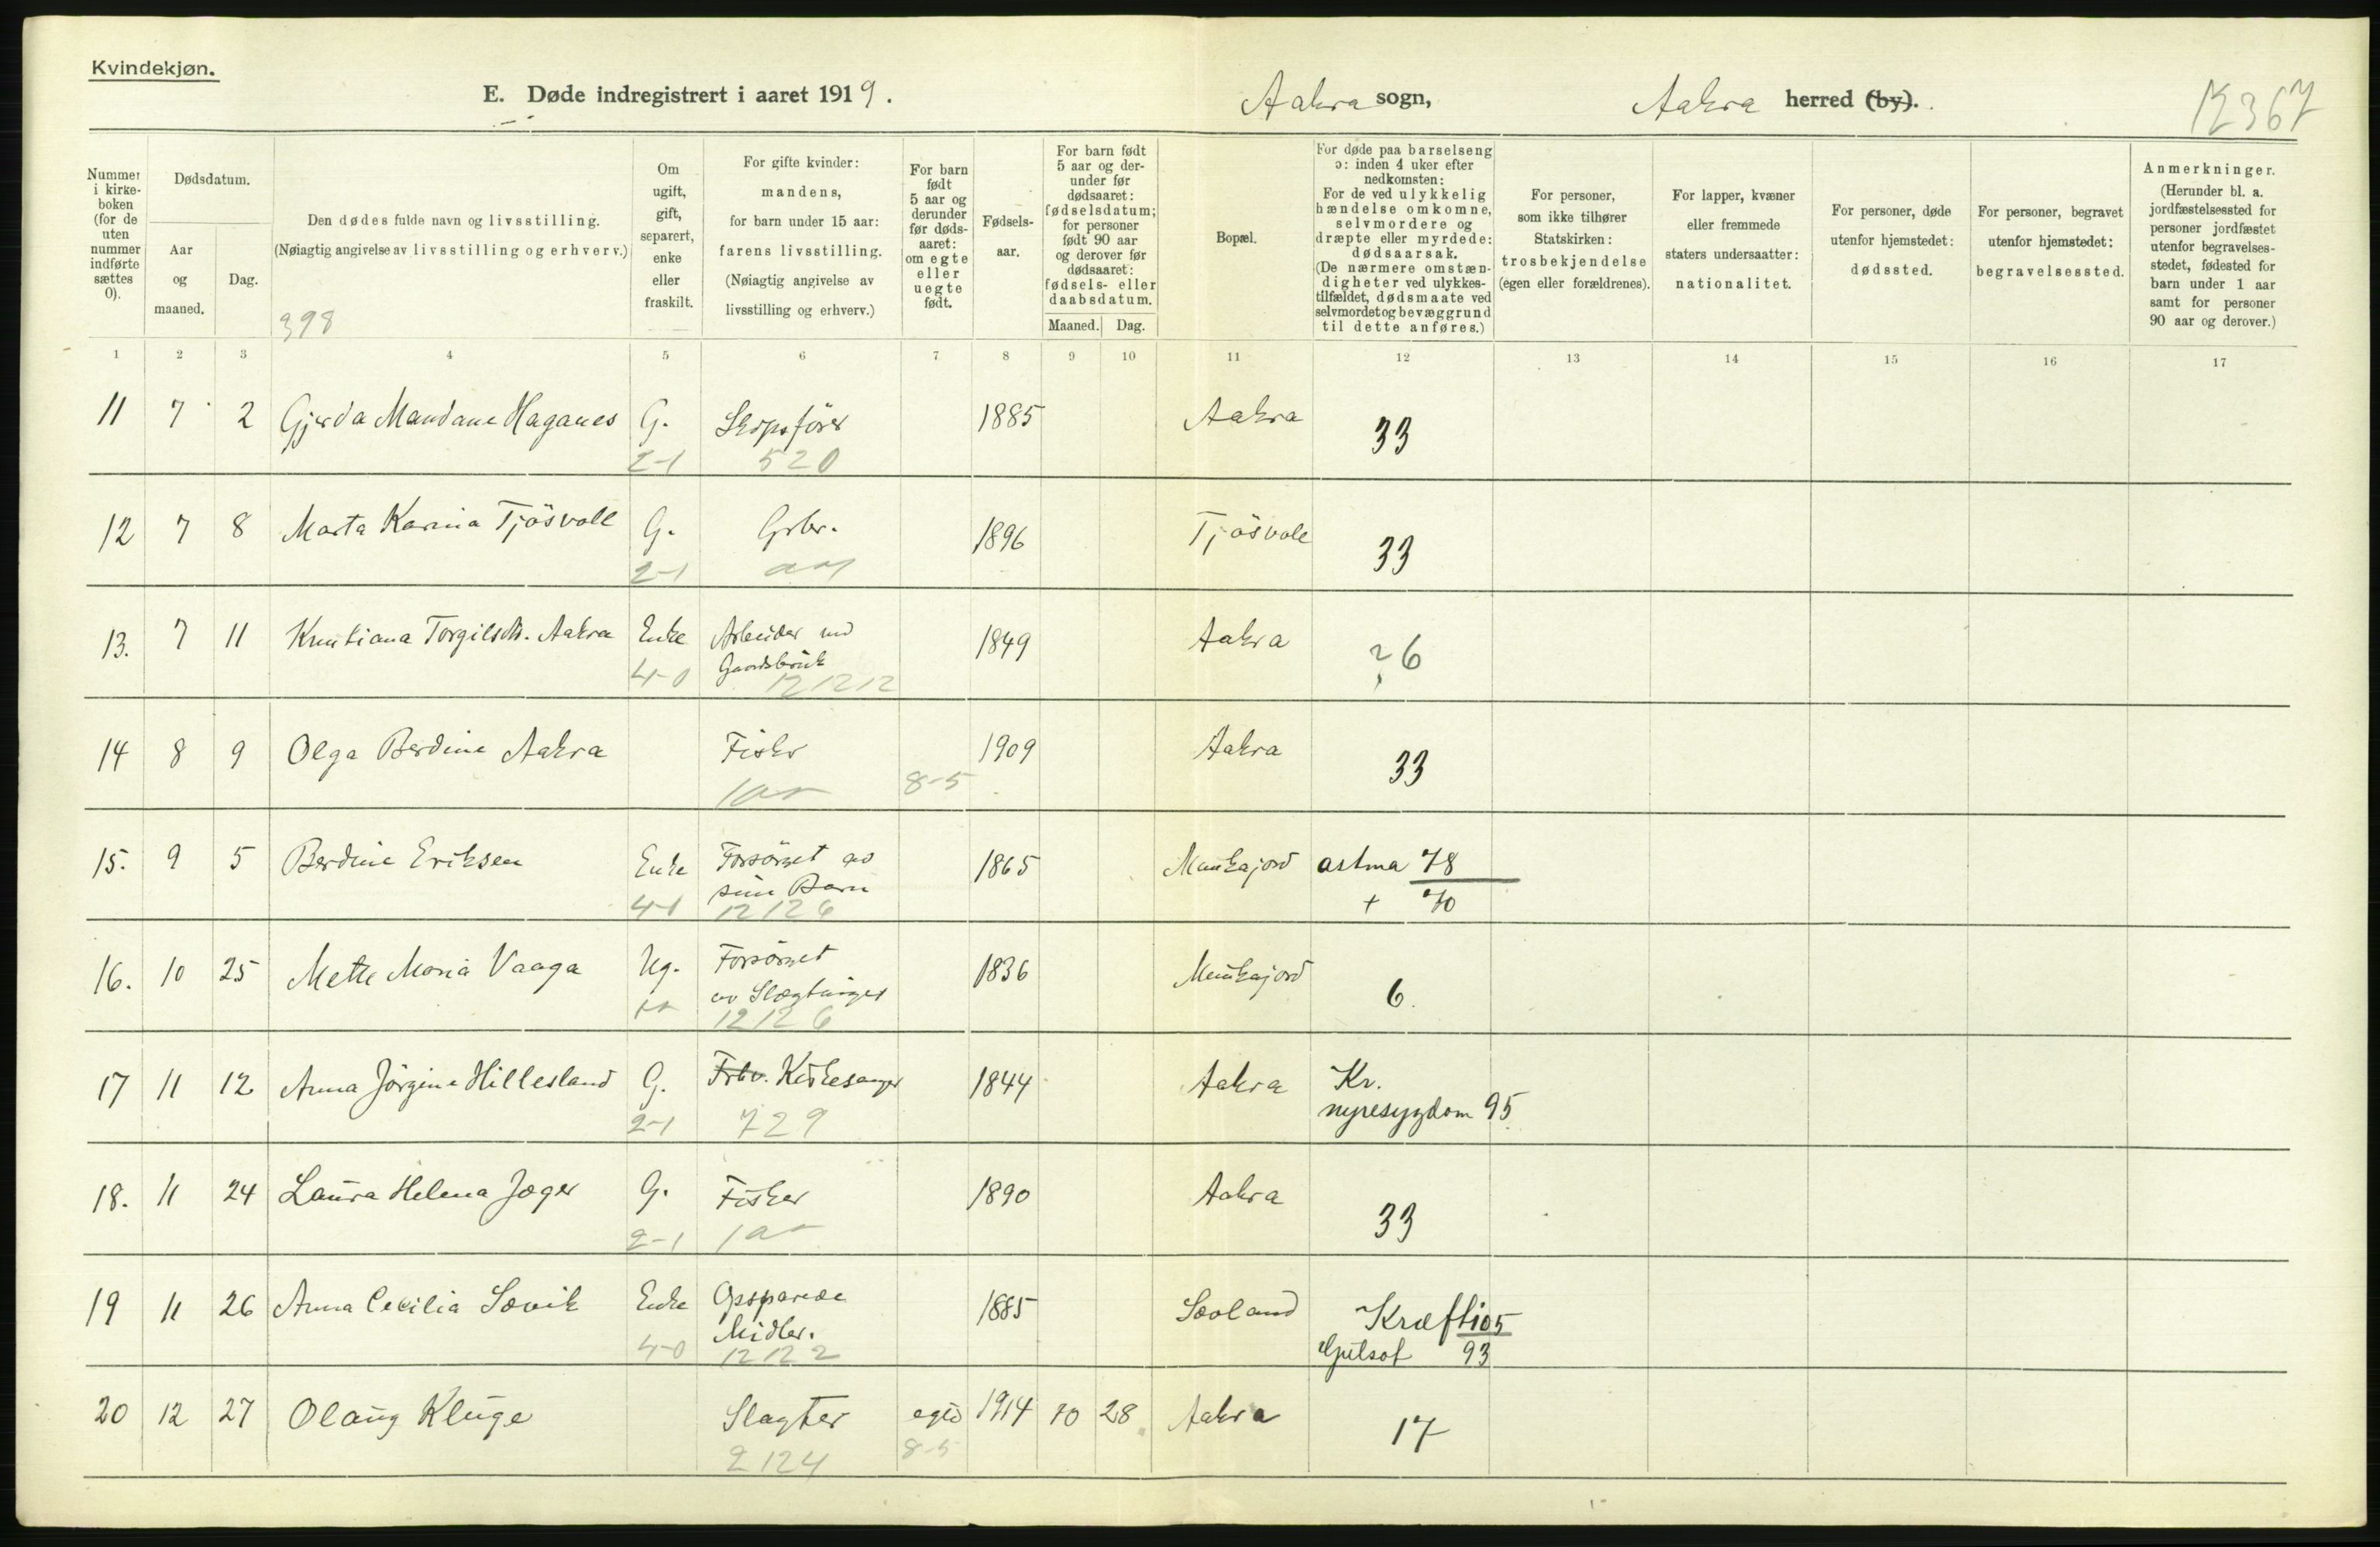 Kvindekjøn.
E. Døde indregistrert i aaret 1919. Aakra sogn, Aakra herred (by). 12367
Nummer i kirkeboken (for de uten nummer indførte sættes 0).
Dødsdatum.
Aar og maaned.
Dag.
Den dødes fulde navn og livsstilling.
(Nøiagtig angivelse av livsstilling og erhverv.)
398
Om ugift, gift, separert, enke eller fraskilt.
For gifte kvinder: mandens, for barn under 15 aar: farens livsstilling. (Nøiagtig angivelse av livsstilling og erhverv.)
For barn født 5 aar og derunder før dødsaaret: om egte eller uegte født.
Fødselsaar.
For barn født 5 aar og derunder før dødsaaret: fødselsdatum; for personer født 90 aar og derover før dødsaaret: fødsels- eller daabsdatum.
Maaned. Dag.
Bopæl.
For døde paa barselseng ɔ: inden 4 uker efter nedkomsten: For de ved ulykkelig hændelse omkomne, selvmordere og dræpte eller myrdede: dødsaarsak. (De nærmere omstændigheter ved ulykkestilfældet, dødsmaate ved selvmordet og bevæggrund til dette anføres.)
For personer, som ikke tilhører Statskirken: trosbekjendelse (egen eller forældrenes).
For lapper, kvæner eller fremmede staters undersaatter: nationalitet.
For personer, døde utenfor hjemstedet: dødssted.
For personer, begravet utenfor hjemstedet: begravelsessted.
Anmerkninger. (Herunder bl. a. jordfæstelsessted for personer jordfæstet utenfor begravelsesstedet, fødested for barn under 1 aar samt for personer 90 aar og derover.)
1 2 3 4 5 6 7 8 9 10 11 12 13 14 15 16 17
11 7 2 Gjerda Mandane Haganes G. Skipsfører 1885 Aakra 33
2-1 520
12 7 8 Marta Karina Tjösvoll G. Grbr. 1896 Tjösvoll 33
2-1
13. 7 11 Kristiana Torgilsdtr. Aakra Enke Arbeider ved 1849 Aakra ? 6
Gaardsbruk
4-0 12 12 12
14 8 9 Olga Berdine Aakra Fisker 1909 Aakra 33
8-5
15. 9 5 Berdine Eriksen Enke Forsörget av 1865 Munkajord astma 78
sine Barn + 70
4-1 12 12 6
16. 10 25 Mette Maria Vaaga Ug. Forsörget 1836 Munkajord 6.
av Slægtninger
12 12 6
17 11 12 Anna Jörgine Hillesland G. Frbv. Kirkesanger 1844 Aakra Kr.
nyresygdom 95
2-1 729
18. 11 24 Laura Helena Jæger G. Fisker 1890 Aakra 33
2-1
19 11 26 Anna Cecilia Sævik Enke Opsparede 1885 Sæoland Kræft 105
Midler. Gulsot 93
4-0 12 12 2
20 12 27 Olaug Kluge Slagter egte 1914 10 28 Aakra 17
2 124 8-5